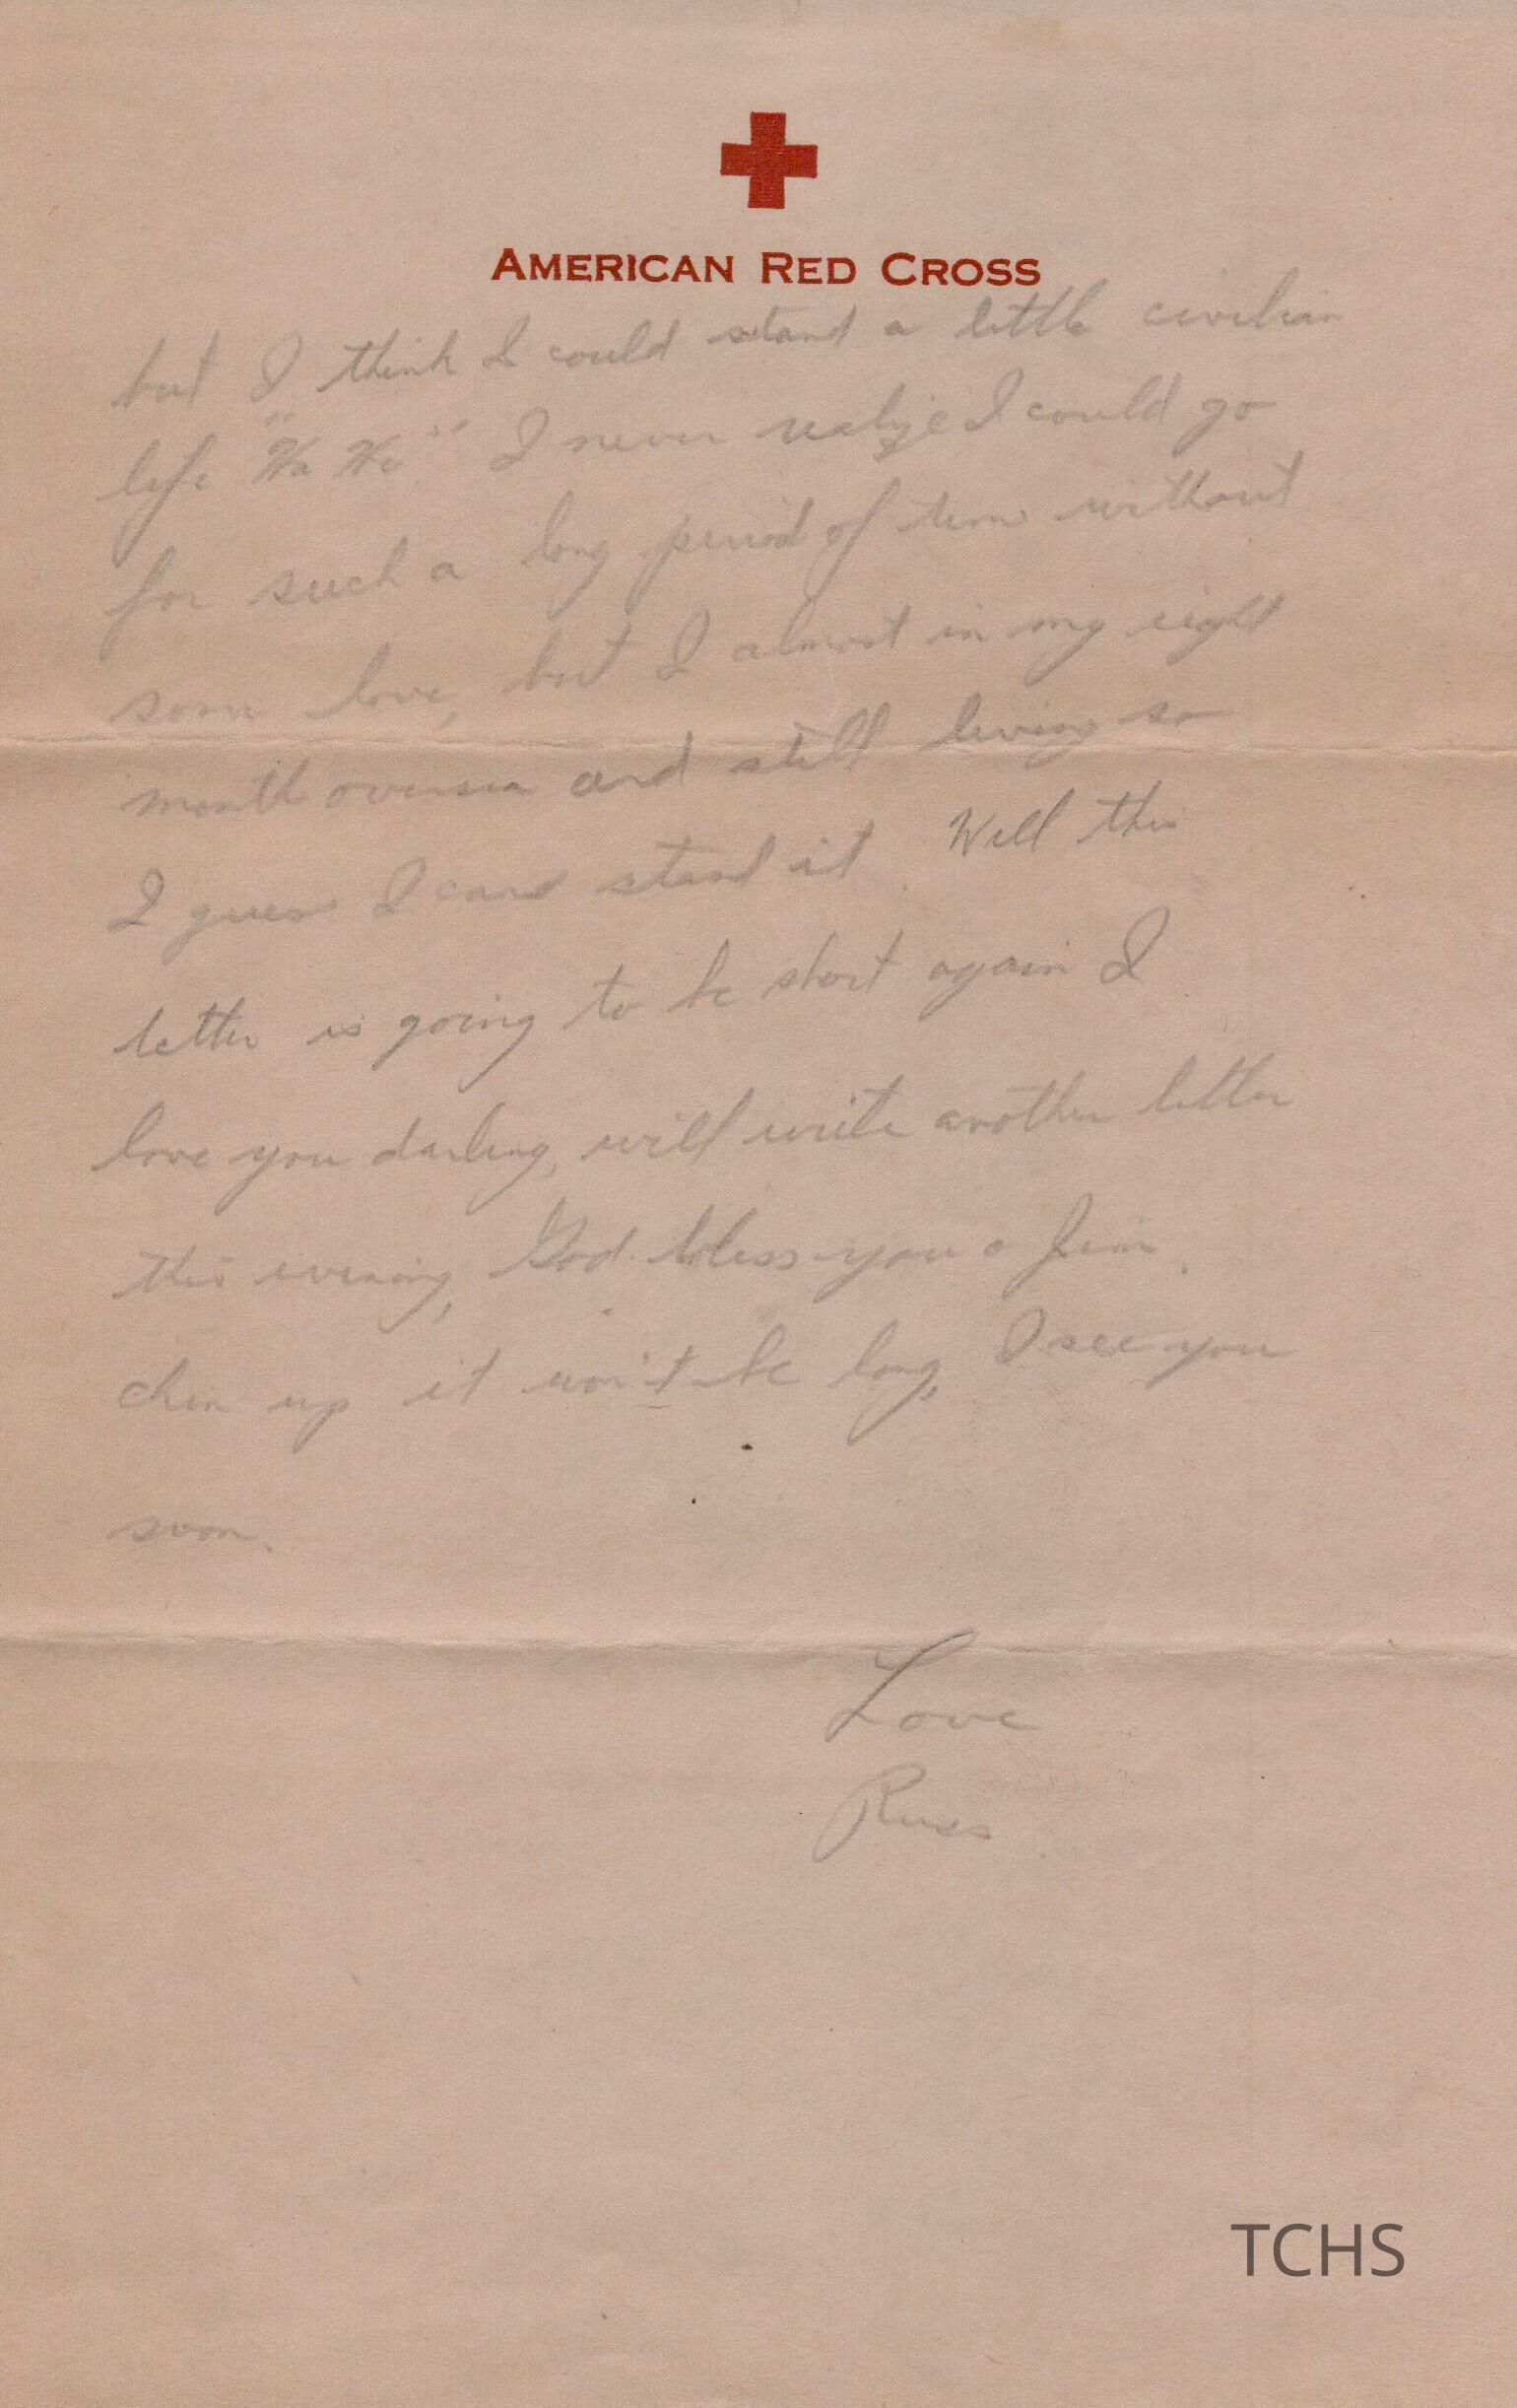 AMERICAN RED CROSS
but I think I could stand a little civilian
life "Ha Ha" I never realize I could go
for such a long period of time without
some love, but I almost in my eight
month oversea and still living so
I guess I can stand it. Well this
letter is going to be short again I
love you darling, will write another letter
this evening, God bless you o Jim.
chin up it won't be long, I see you
soon.
Love
Russ
TCHS